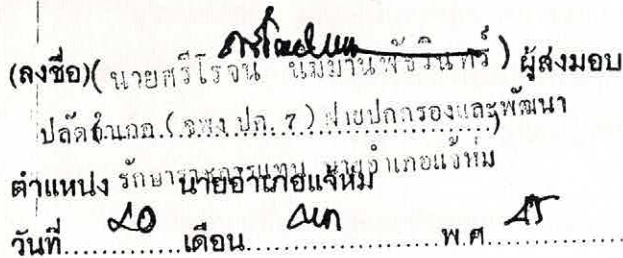 (ลงชื่อ)( นายศรีโรจน์ นิมมานพัชรินทร์ ) ผู้ส่งมอบ
ปลัดอำเภอ (จพง.ปค. 7) ฝ่ายปกครองและพัฒนา
ตำแหน่ง รักษาราชการแทน นายอำเภอแจ้ห่ม นายอำเภอแจ้ห่ม
วันที่ 20 เดือน พ.ศ. 45